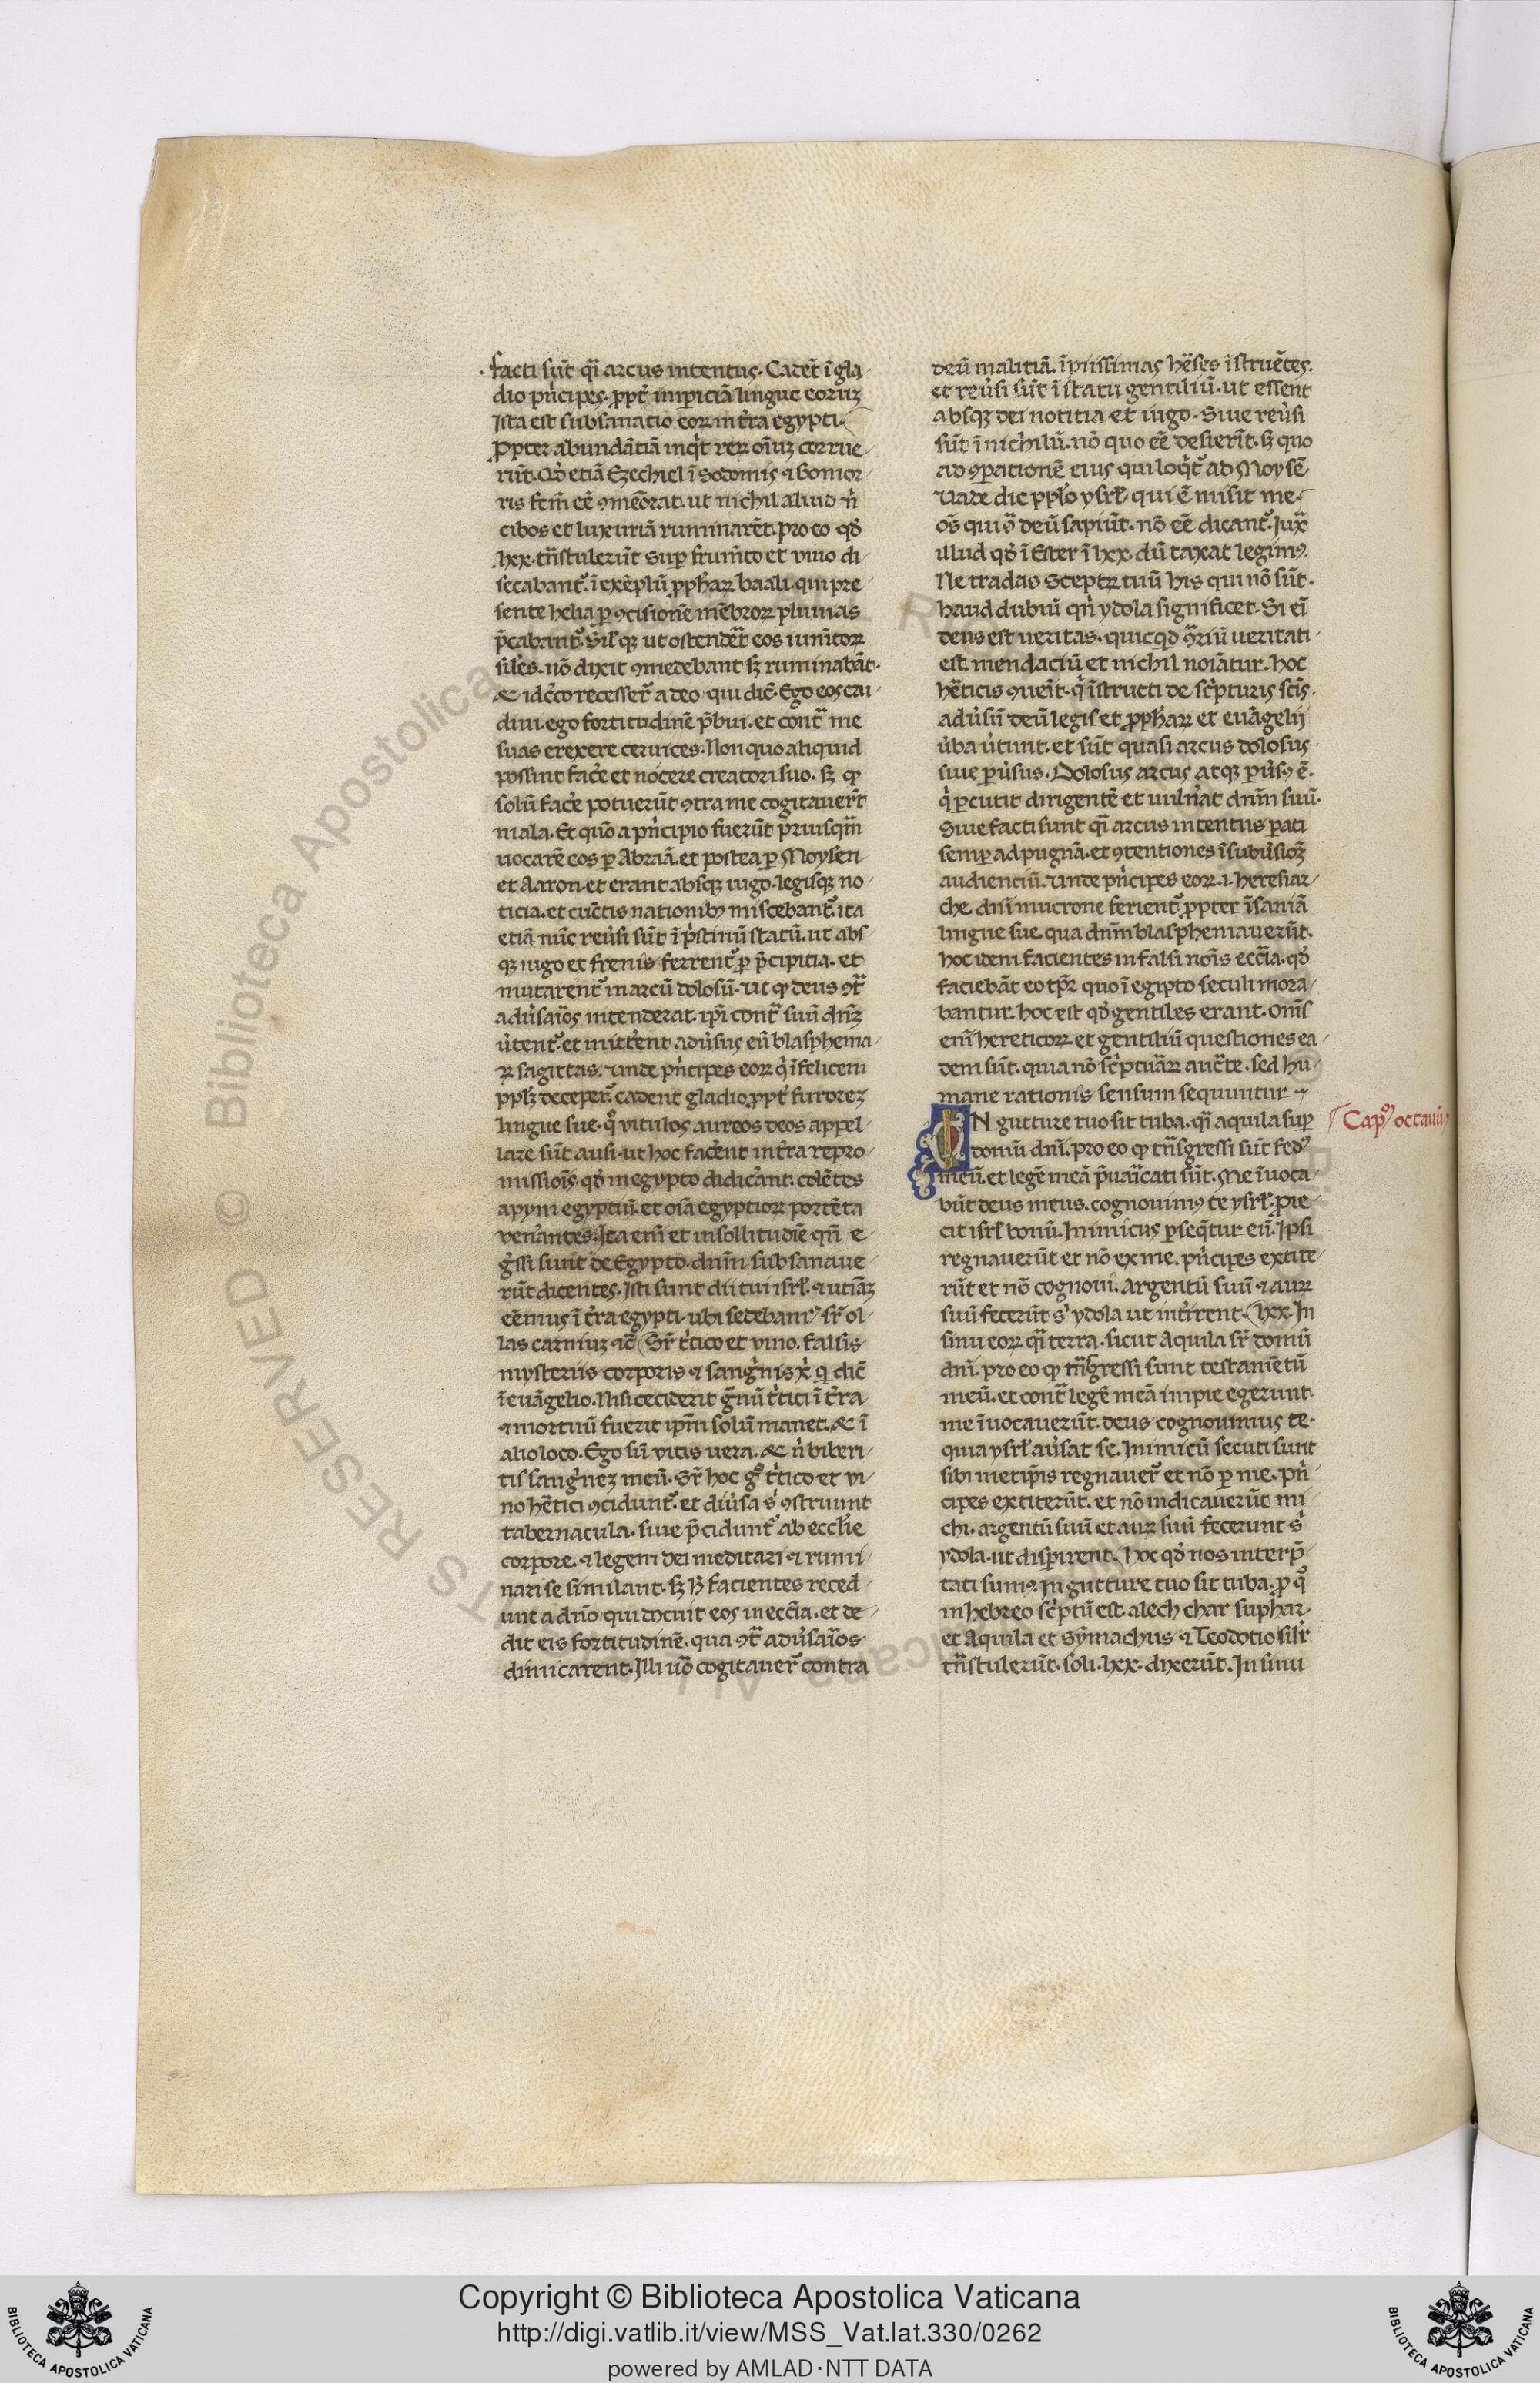 facti sūt qͥ arcus intentus. Cadēt ī gla
dio pͥncipes. ꝓpt̄ imꝑiciā lingue eoruꝫ
Ista est subsanatio eoꝝ in t̄ra egypti.
Propter abundātiā inqͥt reꝝ oīuꝫ corrue
rūt. Qđ etiā Ezechiel ī sodomis ⁊ Gomor
ris fc̄m eē ꝯmēorat. ut nichil aliud nͥ
cibos et luxuriā ruminarēt. pro eo qđ
lxx. tn̄stulerūt suꝑ frum̄to et vino di
secabantᷣ. ī exēplū ꝓph̄aꝝ baali. qui pre
sente helia ꝑ ꝯcisionē mēbroꝝ pluuias
p̄cabantᷣ. Silꝭqꝫ ut ostendēt eos ium̄toꝝ
siles. nō dixit ꝯmedebant sꝫ ruminabāt.
Et idc̄o recesserᷣ a deo qui dic̄. Ego eos eru
diui. ego fortitudinē p̄bui. et contᷓ me
suas erexere ceruices. Non quo aliquid
possint fac̄e et nocere creatori suo. sꝫ ꝙ
solū fac̄e potuerūt ꝯtra me cogitauerūt
mala. Et quō a pͥncipio fuerūt pͥusqᷓm
uocarē eos ꝑ Abraā. et postea ꝑ Moysen
et Aaron. et erant absqꝫ iugo. legisqꝫ no
ticia. et cūctis nationibꝫ miscebantᷣ. ita
etiā nūc reuͥsi sūt ī pͥstinū statū. ut abs
qꝫ iugo et frenis ferrentᷣ ꝑ p̄cipitia. et
mutarentᷣ in arcū dolosū. Ut ꝙ deus ꝯtᷓ
aduͥsaīos intenderat. ipi contᷓ suū dn̄ꝫ
uͥtentᷣ. et mitt̄ent aduͥsus eū blasphema
ꝝ sagittas. Unde pͥncipes eoꝝ qͥ īfelicem
pplꝫ deceperᷣ. cadent gladio. ꝓpt̄ furoreꝫ
lingue sue. qͦ vitulos aureos deos appel
lare sūt ausi. ut hoc fac̄ent in t̄ra repro
missiōis. qđ in egypto didic̄ant. colētes
apym egyptiū. et oīa egyptioꝝ portēta
ven̄antes. Ita enī et in sollitudīe qn̄ e
gͥssi sunt de Egypto. dn̄m subsanaue
rūt dicentes. Isti sunt dii tui isrl. ⁊ utinā
eēmus ī t̄ra egypti. ubi sedebamꝰ sr̄ ol
las carniuꝫ ⁊c̄ Sr̄ tͥtico et vino. falsis
mysteriis corporis ⁊ sangͥnis xͥ qͥ dic̄
ī euāgelio. Nisi ceciderit gᷓnū tͥtici ī t̄ra
⁊ mortuū fuerit ipm̄ solū manet. Et ī
alio loco. Ego sū vitis uera. Et nͥ biberi
tis sangͥneꝫ meū. Sr̄ hoc gͦ tͥtico et vi
no hēͥtici ꝯciduntᷣ. et diuͥsa sͥ ꝯstruunt
tabernacula. siue p̄ciduntᷣ ab ecclīe
corpore. ⁊ legem dei meditari ⁊ rumi
nari se simulant. sꝫ h̄ facientes reced
unt a dn̄o qui docuit eos in ecc̄ia. et de
dit eis fortitudinē. qua ꝯtᷓ aduͥsaīos
dimicarent. Illi uō cogitauerᷣ contra
deū malitiā. īpiissimas hēͥses īstruētes.
et reuͥsi sūt ī statū gentiliū. ut essent
absqꝫ dei notitia et iugo. Siue reuͥsi
sūt ī nichilū. nō quo eē desierīt. sꝫ quo
ad ꝯꝑationē eius qui loqͥtᷣ ad Moysē
Uade dic pplo ysrl. qui ē misit me.
oēs qui ꝯᷓ deū sapiūt. nō eē dicantᷣ. Juxᷓ
illud qđ ī Ester ī lxx. dū taxat legimꝰ.
Ne tradas sceptꝝ tuū his qui nō sūt.
haud dubiū qn̄ ydola significet. Si eī
deus est ueritas. quicqͥd ꝯᷓriū ueritati
est. mendaciū et nichil noīatur. hoc
hēͥticis ꝯueīt. qͥ īstructi de scͥpturis scīs.
aduͥsū deū legis et ꝓph̄aꝝ et euāgelii
uͥba uͥtunt. et sūt quasi arcus dolosus
siue ꝑuͥsus. Dolosus arcus atqꝫ ꝑuͥsꝰ ē.
qͥ ꝑcutit dirigentē et uuln̄at dn̄m suū.
Siue facti sunt qͥ arcus intentus pati
semꝑ ad pugnā. et ꝯtentiones ī subuͥsioꝫ
audienciū. Unde pͥncipes eoꝝ .i. heresiar
che. dn̄i mucrone ferientᷣ ꝓpter īsaniā
lingue sue. qua dn̄m blasphemauerūt.
hoc idem facientes in falsi noīs ecc̄ia. qđ
faciebāt eo tꝑe quo ī egipto seculi mora
bantur. hoc est qđ gentiles erant. Omīs
enī hereticoꝝ et gentiliū questiones ea
dem sūt. quia nō scͥptuᷓꝝ auctᷓte. sed hu
mane rationis sensum sequuntur
IN gutture tuo sit tuba. qͥ aquila suꝑ
domū dn̄i. pro eo ꝙ tn̄sgressi sūt fedꝰ
meū. et legē meā p̄uaᷓicati sūt. Me īuoca
būt deus meus. cognouimꝰ te ysrl. Proie
cit isrl bonū. Inimicus ꝑseqͥtur eū. Ipsi
regnauerūt et nō ex me. pͥncipes extite
rūt et nō cognoui. Argentū suū ⁊ auꝝ
suū fecerūt sͥ ydola ut intͥrent. lxx. In
sinu eoꝝ qͥ terra. sicut Aquila sr̄ domū
dn̄i. pro eo ꝙ tn̄sgressi sunt testam̄etū
meū. et contᷓ legē meā impie egerunt.
me īuocauerūt. deus cognouimus te.
quia ysrl auͥsat se. Inimicū secuti sunt
sibimetipis regnauerᷣ et nō ꝑ me. pͥn
cipes extiterūt. et nō indicauerūt mi
chi. argentū suū et auꝝ suū fecerunt sͥ
ydola. ut disꝑirent. Hoc qđ nos interp̄
tati sumꝰ. In gutture tuo sit tuba. ꝓ qͦ
in hebreo scͥptū est. alech char suphar.
et Aquila et Symachus ⁊ Teodotio silr
tn̄stulerūt. soli .lxx. dixerūt. In sinu
Capͦ octauū
Copyright © Biblioteca Apostolica Vaticana
http://digi.vatlib.it/view/MSS_Vat.lat.330/0262
powered by AMLAD·NTT DATA